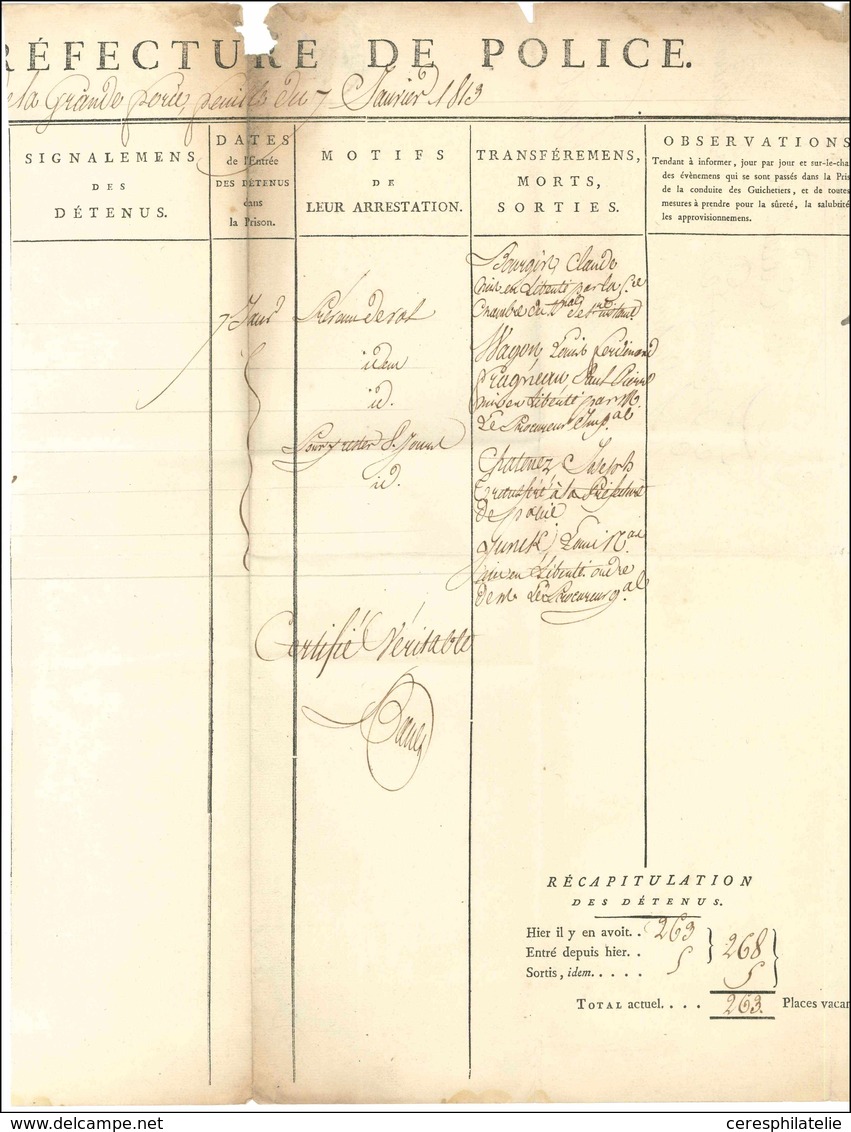 RÉFECTURE DE POLICE.
de la Grande force, feuille du 7 Janvier 1813
SIGNALEMENS
DES
DÉTENUS.
DATES
de l'Entrée
DES DÉTENUS
dans
la Prison.
MOTIFS
DE
LEUR ARRESTATION.
TRANSFÉREMENS,
MORTS,
SORTIES.
OBSERVATIONS
Tendant à informer, jour par jour et sur-le-cha
des évènemens qui se sont passés dans la Pris
de la conduite des Guichetiers, et de toutes
mesures à prendre pour la sûreté, la salubrité
les approvisionnemens.
7 Janv
Prévenu de vol
idem
id.
id.
Claude
mis en Liberté par la
Chambre du
Wagon, Louis ferdinand
mis en Liberté par M.
Le Procureur Imp.al
Joseph
transféré à la Préfecture
de police
Louis
mis en Liberté ordre
de M. Le Procureur g.al
Certifié Véritable
RÉCAPITULATION
DES DÉTENUS.
Hier il y en avoit. . 263
Entré depuis hier. . 5
268
Sortis, idem. . . . . 5
TOTAL actuel. . . . 263. Places vacan
ceresphilatelie